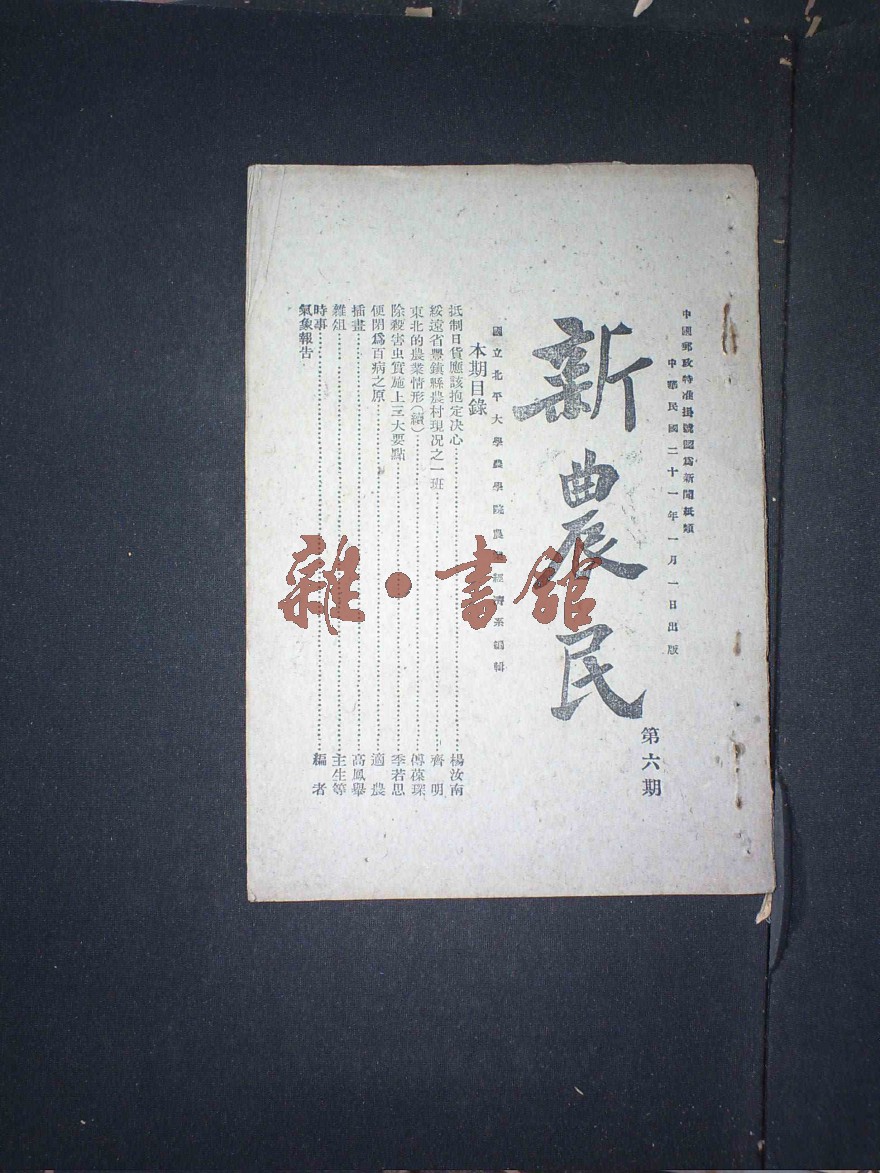 中國郵政特准掛號認爲新聞紙類
中華民國二十一年一月一日出版
新農民
第六期
國立北平大學農學院農業經濟系編輯
本期目錄
抵制日貨應該抱定決心…楊汝南
綏遠省豐鎮縣農村現況之一班…齊明
東北的農業情形(續)…傅葆琛
除殺害虫實施上三大要點…季若思
便閉爲百病之原…適農
插畫…高鳳舉
雜俎…主生等
時事…編者
氣象報告
雜·書舘